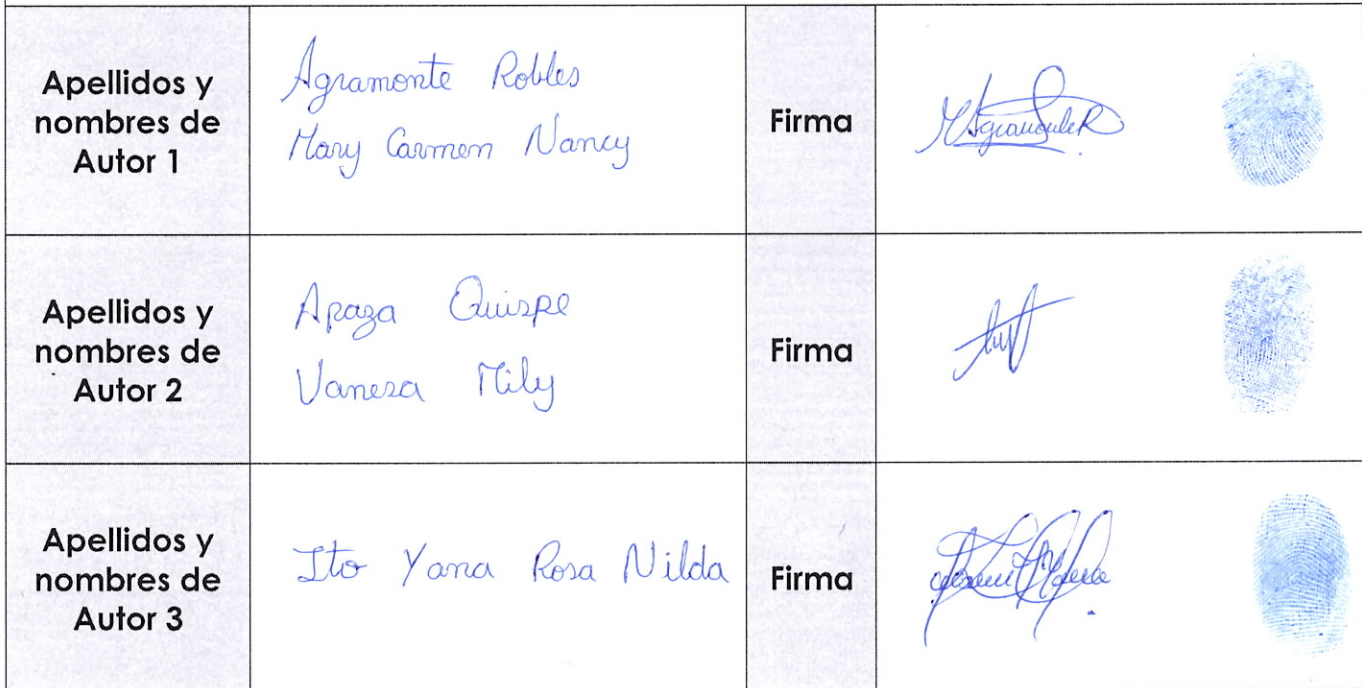 Apellidos y
nombres de
Autor 1
Agramonte Robles
Mary Carmen Nancy
Firma
MAgramonteR
Apellidos y
nombres de
Autor 2
Apaza Quispe
Vanesa Mily
Firma
Apellidos y
nombres de
Autor 3
Ito Yana Rosa Nilda
Firma